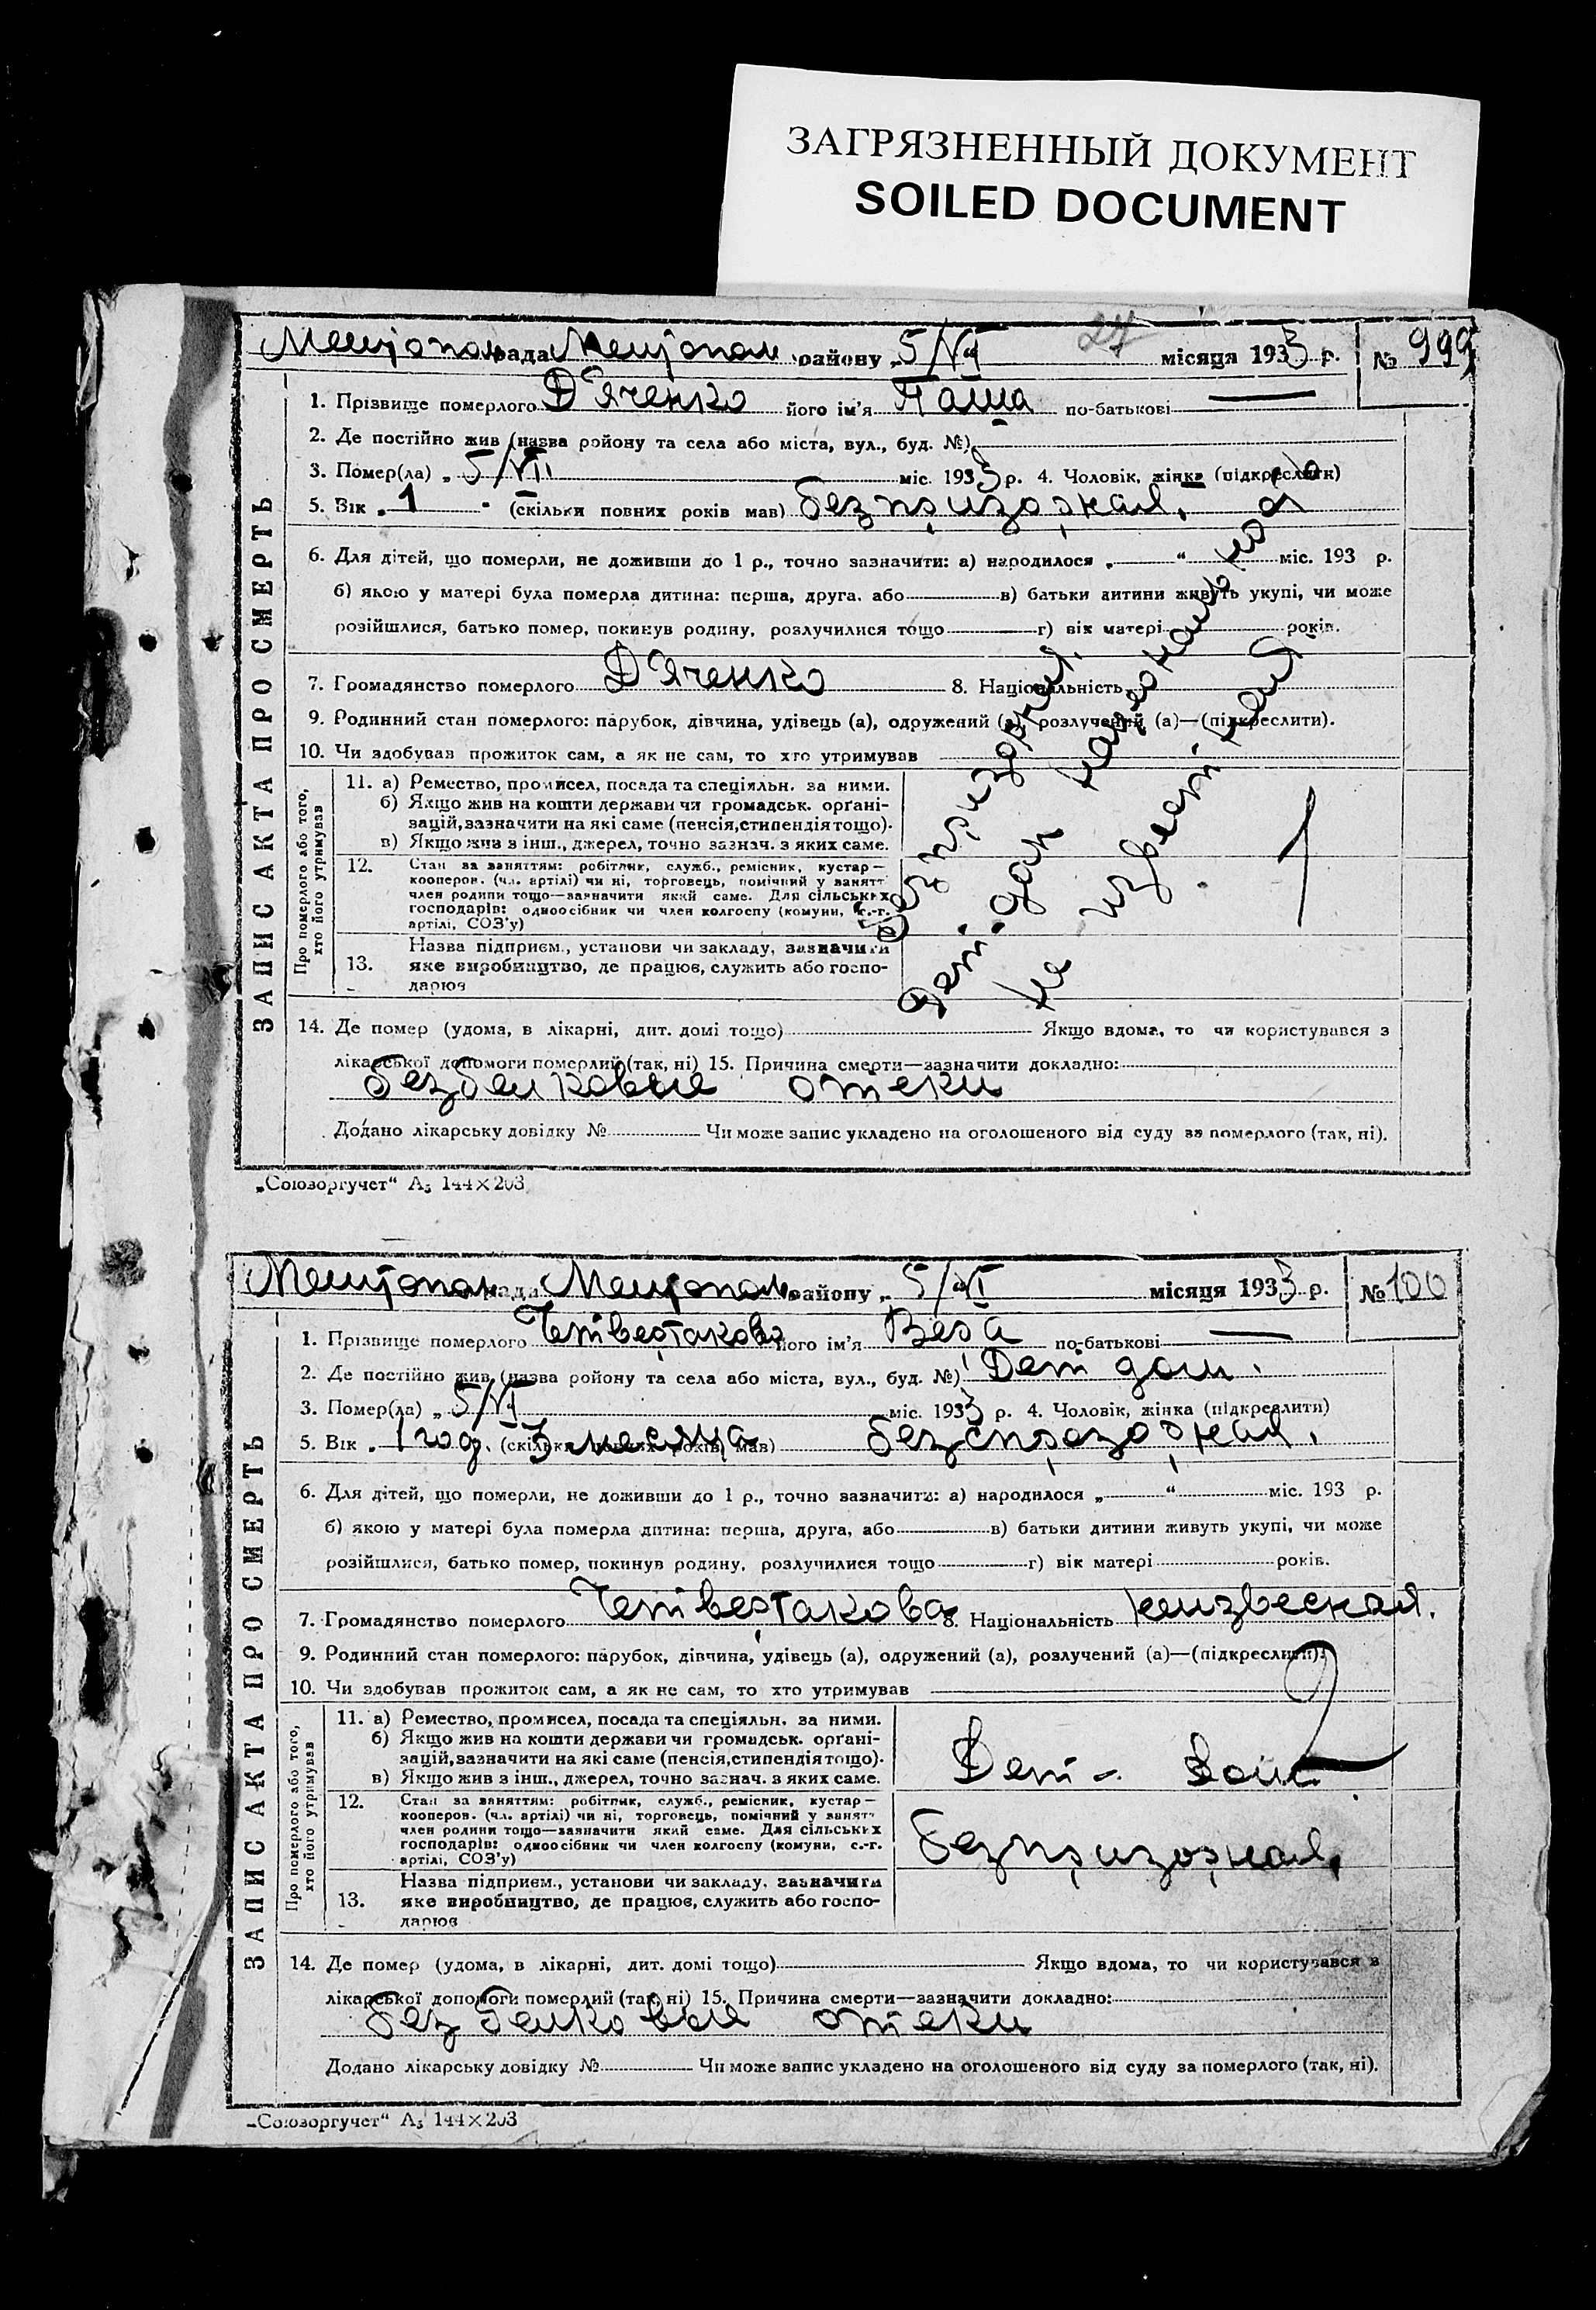 ЗАГРЯЗНЕННЫЙ ДОКУМЕНТ
SOILED DOCUMENT
ЗАПИС АКТА ПРО СМЕРТЬ
рада районy „5/VI місяця 1933 р. № 999
1. Прізвище померлого Дʼяченко його ім'я Паша по-батькові —
2. Де постійно жив (назва району та села або міста, вул., буд. №)
3. Помер(ла) „ 5/VI міс. 1933 р. 4. Чоловік, жінка (підкреслити)
5. Вік „ 1 " (скільки повних років мав) безпризорная.
6. Для дітей, що померли, не доживши до 1 р., точно зазначити: а) народилося „ “ міс. 193 р.
б) якою у матері була померла дитина: перша, друга, або в) батьки дитини живуть укупі, чи може
розійшлися, батько помер, покинув родину, розлучилися тощо г) вік матері років.
7. Громадянство померлого Дʼяченко 8. Національність
9. Родинний стан померлого: парубок, дівчина, удівець (а), одружений (а), розлучений (а)—(підкреслити).
10. Чи здобував прожиток сам, а як не сам, то хто утримував
Про померлого або того, хто його утримував
11. а) Ремество, промисел, посада та спеціяльн. за ними.
б) Якщо жив на кошти держави чи громадськ. орґані-
зацій, зазначити на які саме (пенсія, стипендія тощо).
в) Якщо жив з інш., джерел, точно зазнач. з яких саме.
12. Стан за заняттям: робітник, служб., ремісник, кустар—
кооперов. (чл. артілі) чи ні, торговець, помічний у занятт
член родини тощо—зазначити який саме. Для сільських
господарів: одноосібник чи член колгоспу (комуни, с.-г.
артілі, СОЗ'у)
13. Назва підприєм., установи чи закладу, зазначити
яке виробництво, де працює, служить або госпо-
дарює
безпризорная.
дет. дом национальность
не известная
14. Де помер (удома, в лікарні, дит. домі тощо) Якщо вдома, то чи користувався з
лікарської допомоги померлий (так, ні) 15. Причина смерти—зазначити докладно:
безбелковые отеки
Додано лікарську довідку № Чи може запис укладено на оголошеного від суду за померлого (так, ні).
„Союзоргучет“ А₅ 144×203
ЗАПИС АКТА ПРО СМЕРТЬ
рада району „ 5/VI місяця 1933 р. № 100
1. Прізвище померлого Четвертакова його ім'я Вера по-батькові —
2. Де постійно жив (назва району та села або міста, вул., буд. №) Дет дом.
3. Помер(ла) „ 5/VI міс. 1933 р. 4. Чоловік, жінка (підкреслити)
5. Вік „ 1 год. 3 месяца (скільки повних років мав)
6. Для дітей, що померли, не доживши до 1 р., точно зазначити: а) народилося „ “ міс. 193 р.
б) якою у матері була померла дитина: перша, друга, або в) батьки дитини живуть укупі, чи може
розійшлися, батько помер, покинув родину, розлучилися тощо г) вік матері років.
7. Громадянство померлого Четвертакова 8. Національність неизвесная.
9. Родинний стан померлого: парубок, дівчина, удівець (а), одружений (а), розлучений (а)—(підкреслити).
10. Чи здобував прожиток сам, а як не сам, то хто утримував
Про померлого або того, хто його утримував
11. а) Ремество, промисел, посада та спеціяльн. за ними.
б) Якщо жив на кошти держави чи громадськ. орґані-
зацій, зазначити на які саме (пенсія, стипендія тощо).
в) Якщо жив з інш., джерел, точно зазнач. з яких саме.
Дет - Дом
12. Стан за заняттям: робітник, служб., ремісник, кустар—
кооперов. (чл. артілі) чи ні, торговець, помічний у занятт
член родини тощо—зазначити який саме. Для сільських
господарів: одноосібник чи член колгоспу (комуни, с.-г.
артілі, СОЗ'у)
безпризорная,
13. Назва підприєм., установи чи закладу, зазначити
яке виробництво, де працює, служить або госпо-
дарює
14. Де помер (удома, в лікарні, дит. домі тощо) Якщо вдома, то чи користувався з
лікарської допомоги померлий (так, ні) 15. Причина смерти—зазначити докладно:
безбелковые отеки
Додано лікарську довідку № Чи може запис укладено на оголошеного від суду за померлого (так, ні).
„Союзоргучет“ А₅ 144×203